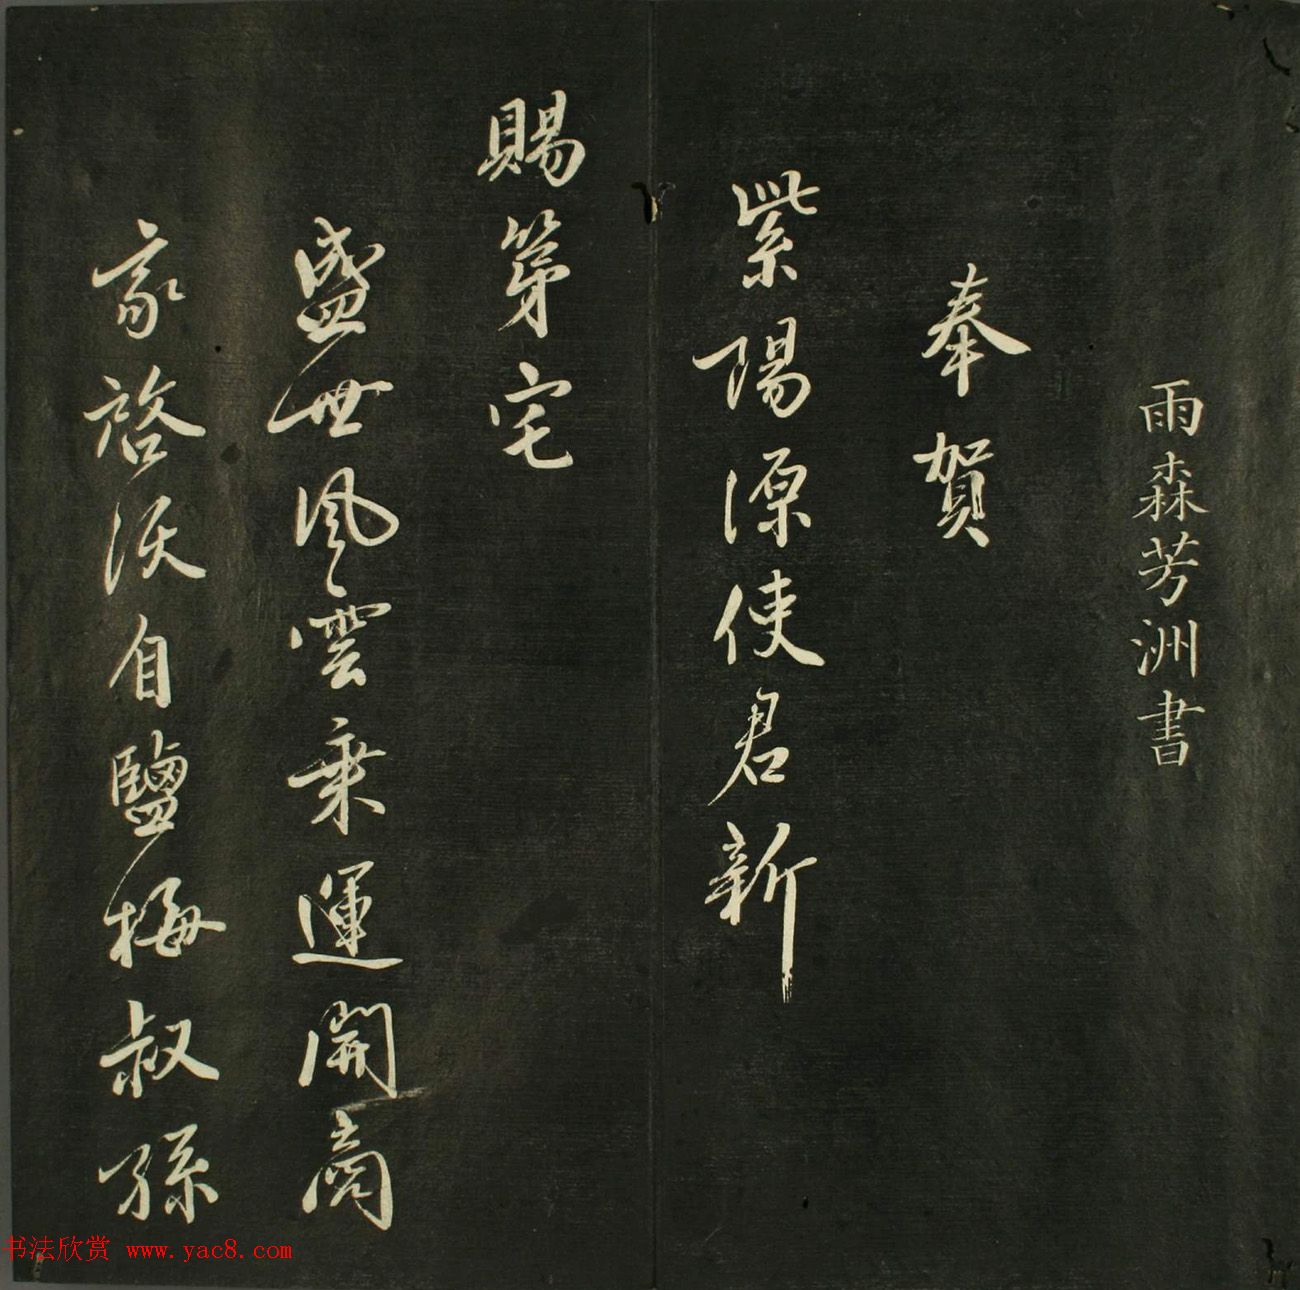 雨森芳洲書
奉賀
紫陽源使君新
賜第宅
盛世風雲乗運開商
家啓沃自鹽梅叔孫
书法欣赏 www.yac8.com